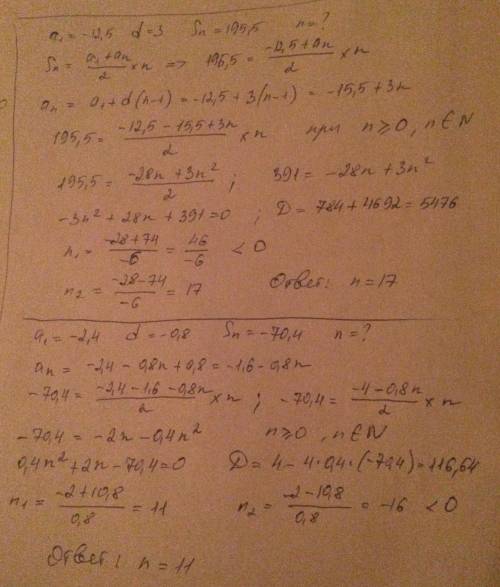 a₁ = -12,5 d = 3 Sn = 195,5 n = ?
Sn = (a₁ + an)/2 × n => 195,5 = (-12,5 + an)/2 × n
an = a₁ + d(n-1) = -12,5 + 3(n-1) = -15,5 + 3n
195,5 = (-12,5 - 15,5 + 3n)/2 × n при n ≥ 0, n ∈ N
195,5 = (-28n + 3n²)/2 ; 391 = -28n + 3n²
-3n² + 28n + 391 = 0 ; D = 784 + 4692 = 5476
n₁ = (-28 + 74)/-6 = 46/-6 < 0
n₂ = (-28 - 74)/-6 = 17 Ответ: n = 17
a₁ = -2,4 d = -0,8 Sn = -70,4 n = ?
an = -2,4 - 0,8n + 0,8 = -1,6 - 0,8n
-70,4 = (-2,4 - 1,6 - 0,8n)/2 × n ; -70,4 = (-4 - 0,8n)/2 × n
-70,4 = -2n - 0,4n² n ≥ 0, n ∈ N
0,4n² + 2n - 70,4 = 0 D = 4 - 4*0,4*(-70,4) = 116,64
n₁ = (-2 + 10,8)/0,8 = 11 n₂ = (-2 - 10,8)/0,8 = -16 < 0
Ответ: n = 11